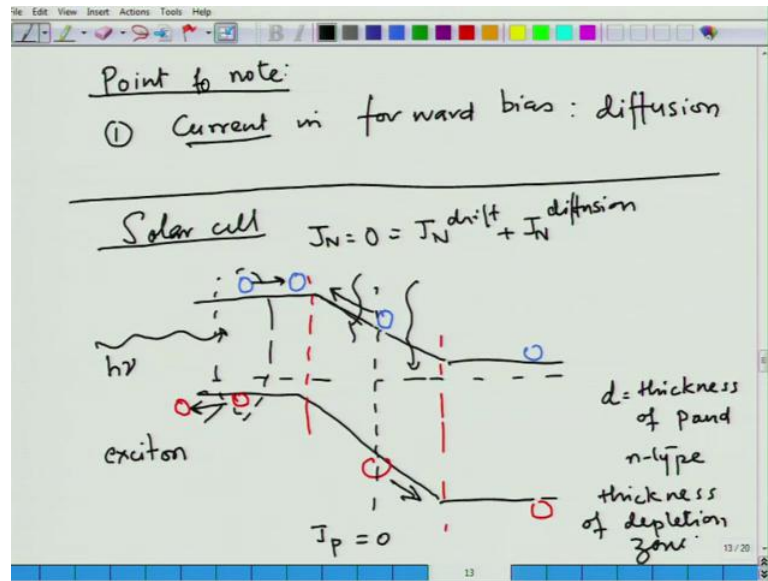 File Edit View Insert Actions Tools Help
Point to note:
① Current in forward bias : diffusion
Solar cell J_N = 0 = J_N^drift + J_N^diffusion
hν
exciton
J_p = 0
d = thickness
of p and
n-type
thickness
of depletion
zone
13/20
13